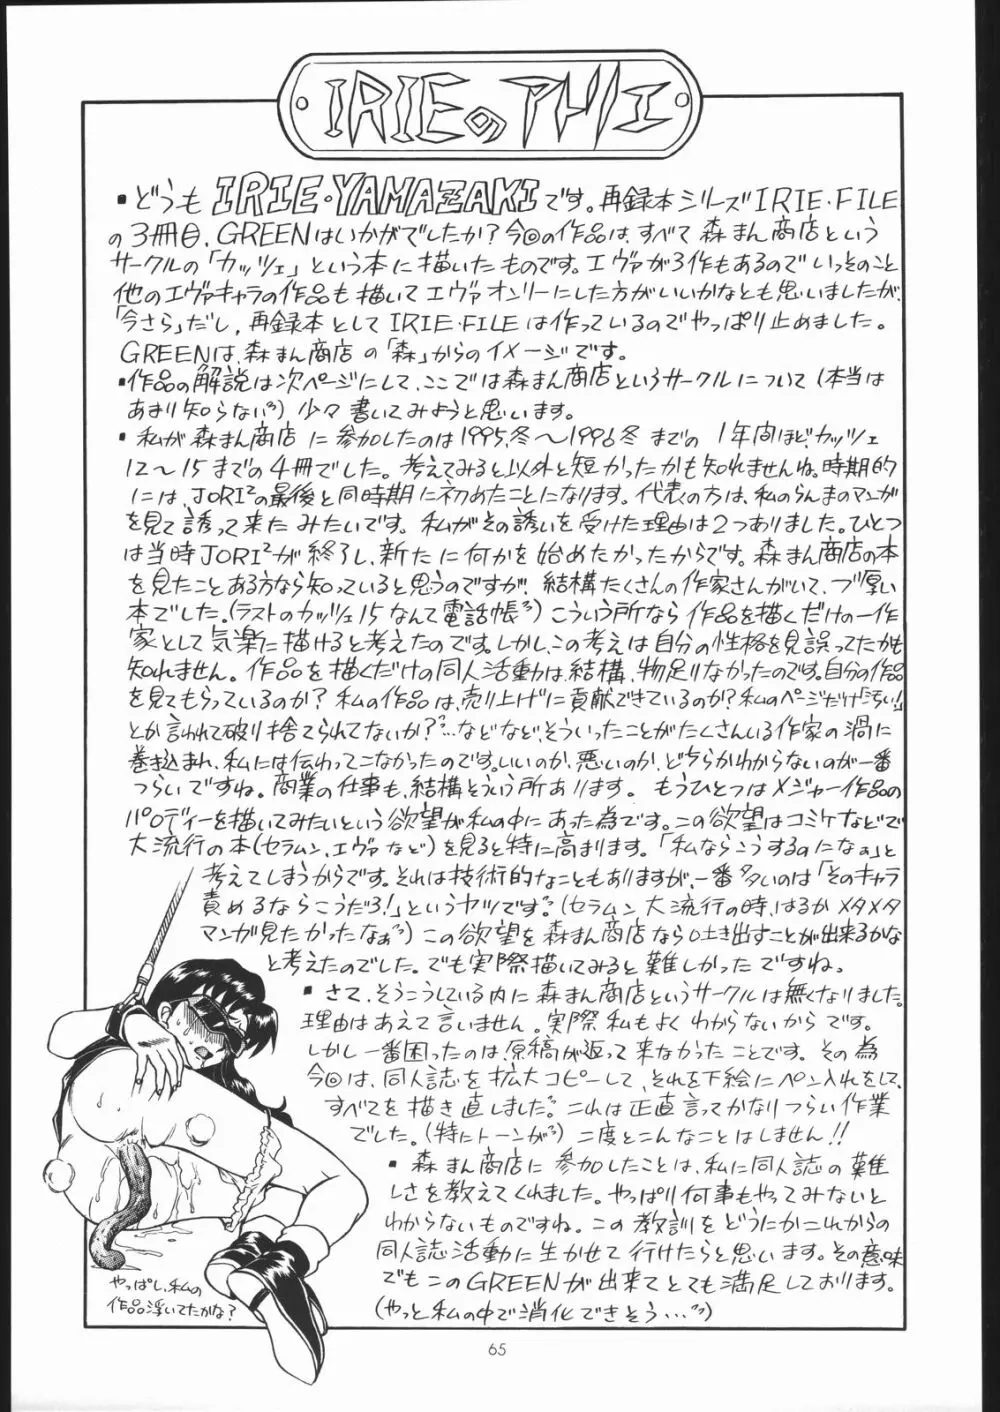 IRIEの
・どうもIRIE・YAMAZAKIです。再録本シリーズIRIE・FILE
の3冊目、GREENはいかがでしたか?今回の作品は、すべて森まん商店という
サークルの「カッツェ」という本に描いたものです。エヴァが3作もあるのでいっそのこと
他のエヴァキャラの作品も描いてエヴァオンリーにした方がいいかなとも思いましたが、
「今さら」だし、再録本としてIRIE・FILEは作っているのでやっぱり止めました。
GREENは、森まん商店の「森」からのイメージです。
・作品の解説は次ページにして、ここでは森まん商店というサークルについて(本当は
あまり知らない)少々書いてみようと思います。
・私が森まん商店に参加したのは1995,冬〜1996冬までの1年間ほど、カッツェ
12〜15までの4冊でした。考えてみると以外と短かったかも知れませんね。時期的
には、JORI²の最後と同時期に初めたことになります。代表の方は、私のらんまのマンガ
を見て誘って来たみたいです。私がその誘いを受けた理由は2つありました。ひとつ
は当時JORI²が終了し、新たに何かを始めたかったからです。森まん商店の本
を見たことある方なら知っていると思うのですが、結構たくさんの作家さんがいて、ブ厚い
本でした。(ラストのカッツェ15なんて電話帳)こういう所なら作品を描くだけの一作
家として気楽に描けると考えたのです。しかし、この考えは自分の性格を見誤ってたかも
知れません。作品を描くだけの同人活動は、結構、物足りなかったのです。自分の作品
を見てもらっているのか?私の作品は、売り上げに貢献できているのか?私のページだけ「汚い!」
とか言われて破り捨てられてないか?…などなど、そういったことがたくさんいる作家の渦に
巻き込まれ、私には伝わってこなかったのです。いいのか、悪いのか、どちらかわからないのが一番
つらいですね。商業の仕事も、結構そういう所あります。もうひとつはメジャー作品の
パロディーを描いてみたいという欲望が私の中にあった為です。この欲望はコミケなどで
大流行の本(セラムン、エヴァなど)を見ると特に高まります。「私ならこうするのになぁ」と
考えてしまうからです。それは技術的なこともありますが、一番多いのは「そのキャラ
責めるならこうだろ!」というヤツです。(セラムン大流行の時、はるかメタメタ
マンガ見たかったなぁ)この欲望を森まん商店なら吐き出すことが出来るかな
と考えたのでした。でも実際描いてみると難しかったですね。
・さて、そうこうしている内に森まん商店というサークルは無くなりました。
理由はあえて言いません。実際私もよくわからないからです。
しかし一番困ったのは、原稿が返って来なかったことです。その為
今回は、同人誌を拡大コピーして、それを下絵にペン入れをして、
すべてを描き直しました。これは正直言ってかなりつらい作業
でした。(特にトーンが)二度とこんなことはしません!!
・森まん商店に参加したことは、私に同人誌の難
しさを教えてくれました。やっぱり何事もやってみないと
わからないものですね。この教訓をどうにかこれからの
同人誌活動に生かせて行けたらと思います。その意味
でもこのGREENが出来てとても満足しております。
(やっと私の中で消化できそう…)
やっぱし、私の
作品浮いてたかな?
65